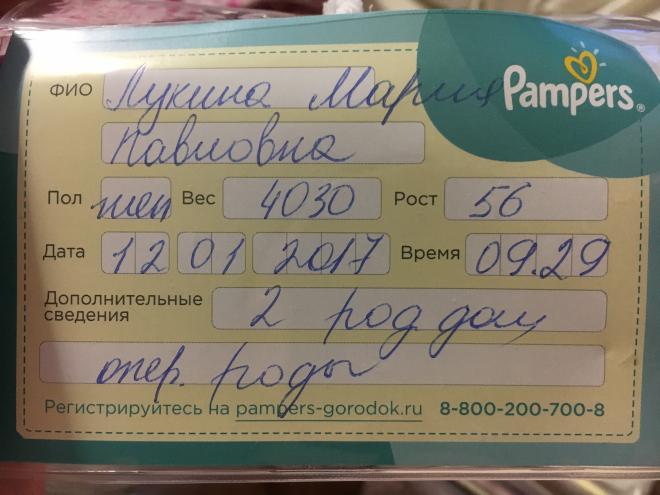 Pampers
ФИО Лукина Мария
Павловна
Пол жен Вес 4030 Рост 56
Дата 12 01 2017 Время 09.29
Дополнительные
сведения 2 род дом
опер. роды
Регистрируйтесь на pampers-gorodok.ru 8-800-200-700-8